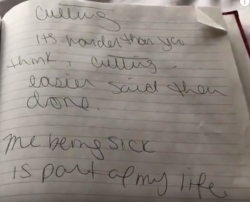 cutting
its harder than you
think, cutting.
easier said then
done.
me being sick
is part of my life.